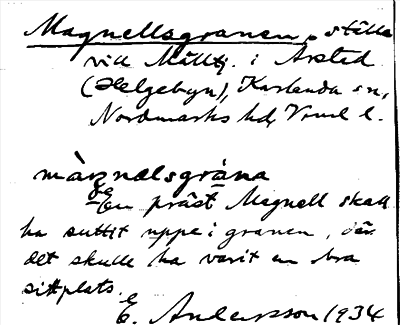 Magnellsgranen, ställe
vid Målltj. i Årsted
(Helgebyn), Karlanda sn,
Nordmarks hd, Vrml l.
màŋnælsgràna
En präst Magnell skall
ha suttit uppe i granen, där
det skulle ha varit en bra
sittplats.
E. Andersson 1934